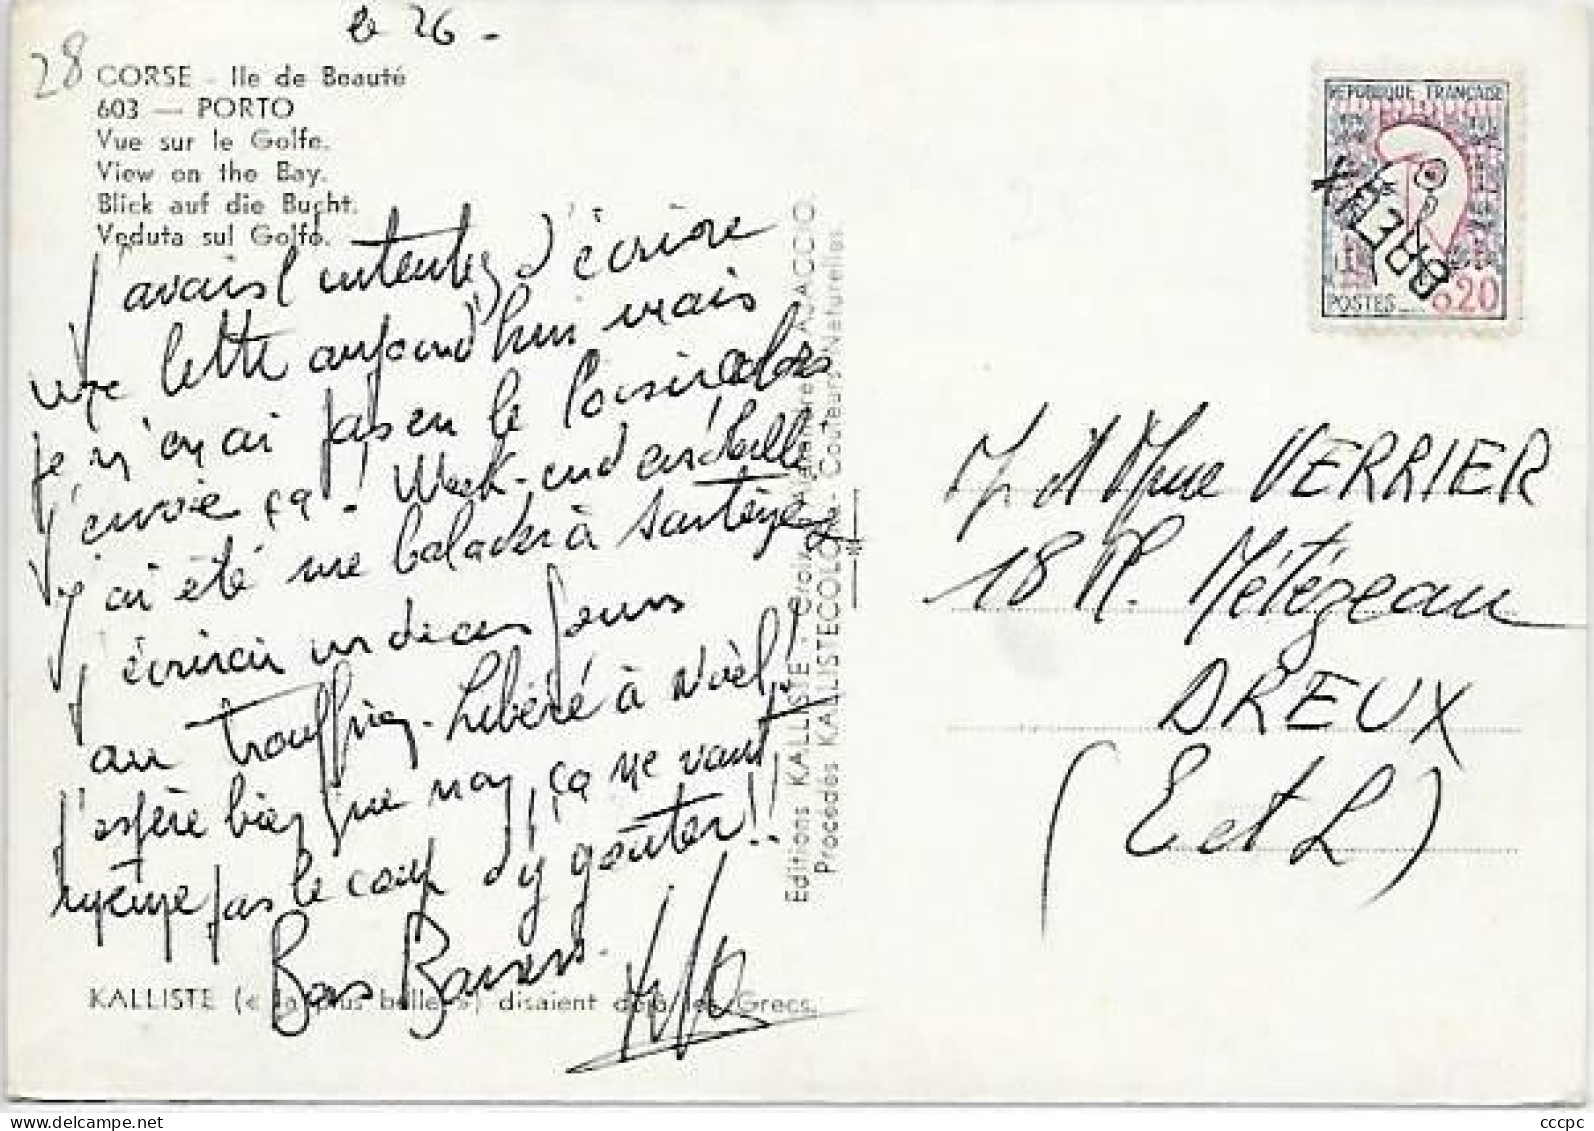 le 26 -
28
CORSE - Ile de Beauté
603 — PORTO
Vue sur le Golfe.
View on the Bay.
Blick auf die Bucht.
Veduta sul Golfo.
J'avais l'intention d'écrire
une lettre aujourd'hui mais
je n'en ai pas eu le loisir alors
j'envoie ça. Week-end
j'ai été me balader à Sartène
j'écrirai un de ces jours
au troufion. Libéré à Noël,
j'espère bien que non, ça ne vaut
même pas le coup d'y goûter!!
Bons Baisers.
KALLISTE (« la plus belle ») disaient déjà les Grecs.
Editions KALLISTE - AJACCIO.
Procédés KALLISTECOLOR - Couleurs Naturelles.
REPUBLIQUE FRANÇAISE
POSTES 0,20
DREUX
M et Mme VERRIER
18 R. Métézeau
DREUX
(E et L)
cccpc